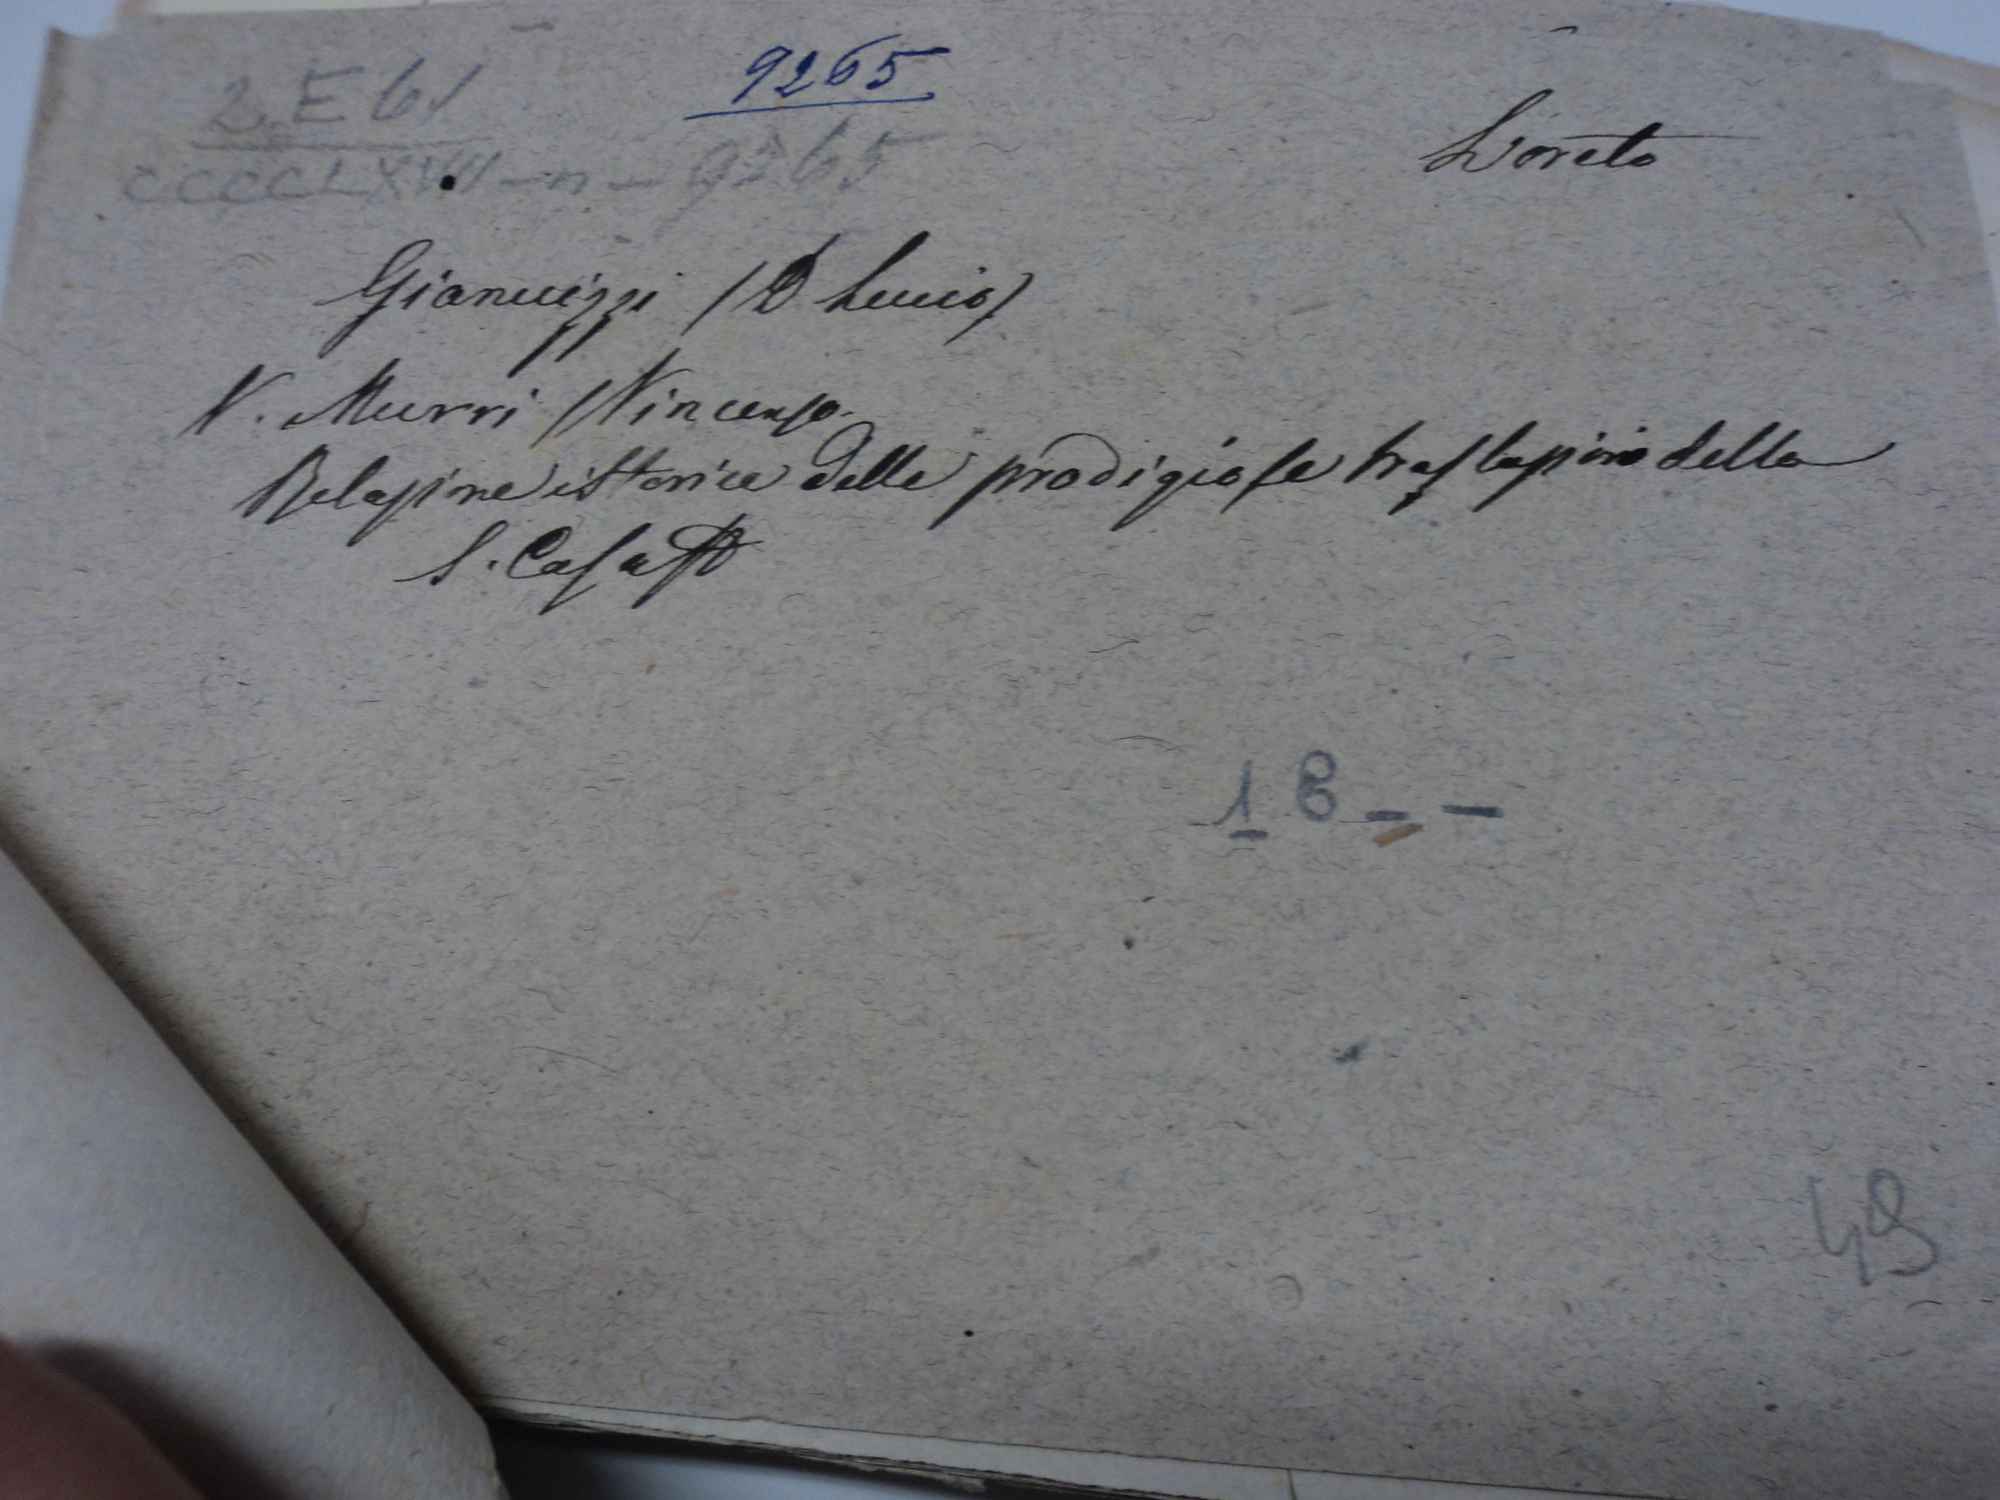 2 E 61
9265
Loreto
CCCCLXVIII - n - 9265
Gianuizzi (D Lucio)
V. Murri (Vincenzo.
Relazione istorica delle prodigiose traslazioni della
S. Casa
49